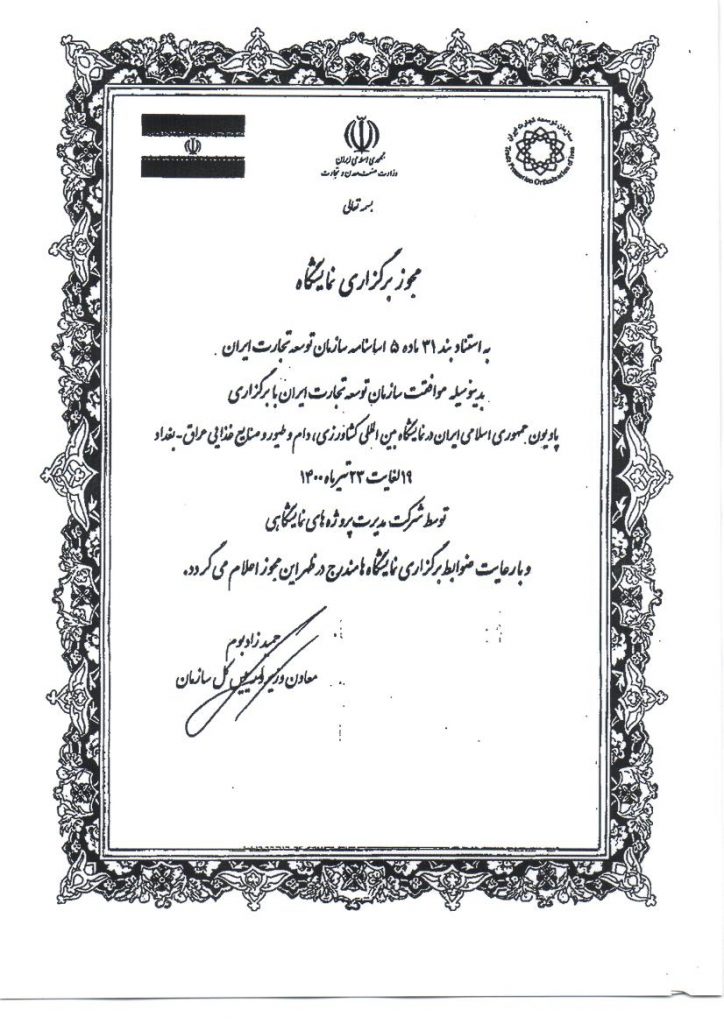 جمهوری اسلامی ایران
وزارت صنعت، معدن و تجارت
سازمان توسعه تجارت ایران
Trade Promotion Organization of Iran
بسمه تعالی
مجوز برگزاری نمایشگاه
به استناد بند ۳۱ ماده ۵ اساسنامه سازمان توسعه تجارت ایران
بدینوسیله موافقت سازمان توسعه تجارت ایران با برگزاری
پاویون جمهوری اسلامی ایران در نمایشگاه بین المللی کشاورزی، دام و طیور و صنایع غذایی عراق - بغداد
۱۹ لغایت ۲۳ تیرماه ۱۴۰۰
توسط شرکت مدیریت پروژه های نمایشگاهی
و با رعایت ضوابط برگزاری نمایشگاه ها مندرج در ظهر این مجوز اعلام می گردد.
حمید زادبوم
معاون وزیر و رییس کل سازمان